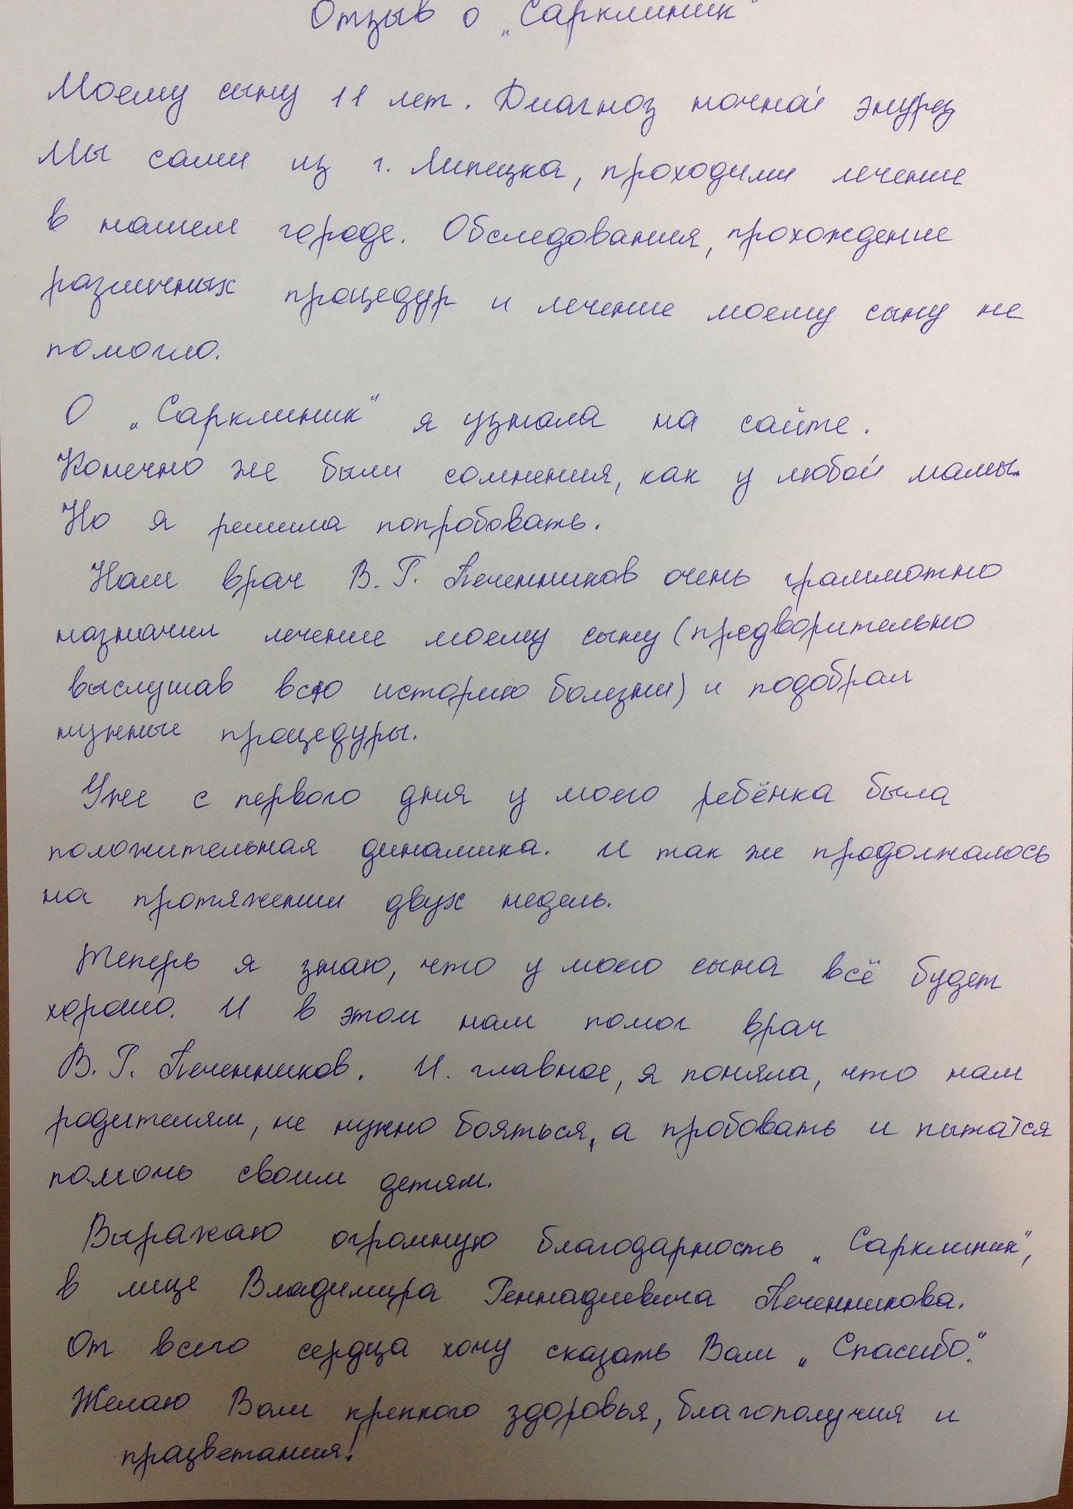 Отзыв о „Сарклиник“
Моему сыну 11 лет. Диагноз ночной энурез
Мы сами из г. Липецка, проходили лечение
в нашем городе. Обследования, прохождение
различных процедур и лечение моему сыну не
помогло.
О „Сарклиник“ я узнала на сайте.
Конечно же были сомнения, как у любой мамы.
Но я решила попробовать.
Наш врач В. Г. Печенников очень граммотно
назначил лечение моему сыну (предворительно
выслушав всю историю болезни) и подобрал
нужные процедуры.
Уже с первого дня у моего ребёнка была
положительная динамика. И так же продолжалось
на протяжении двух недель.
Теперь я знаю, что у моего сына всё будет
хорошо. И в этом нам помог врач
В. Г. Печенников. И. главное, я поняла, что нам
родителям, не нужно бояться, а пробовать и пытатся
помочь своим детям.
Выражаю огромную благодарность „Сарклиник“,
в лице Владимира Геннадиевича Печенникова.
От всего сердца хочу сказать Вам „Спасибо.“
Желаю Вам крепкого здоровья, благополучия и
працветания!